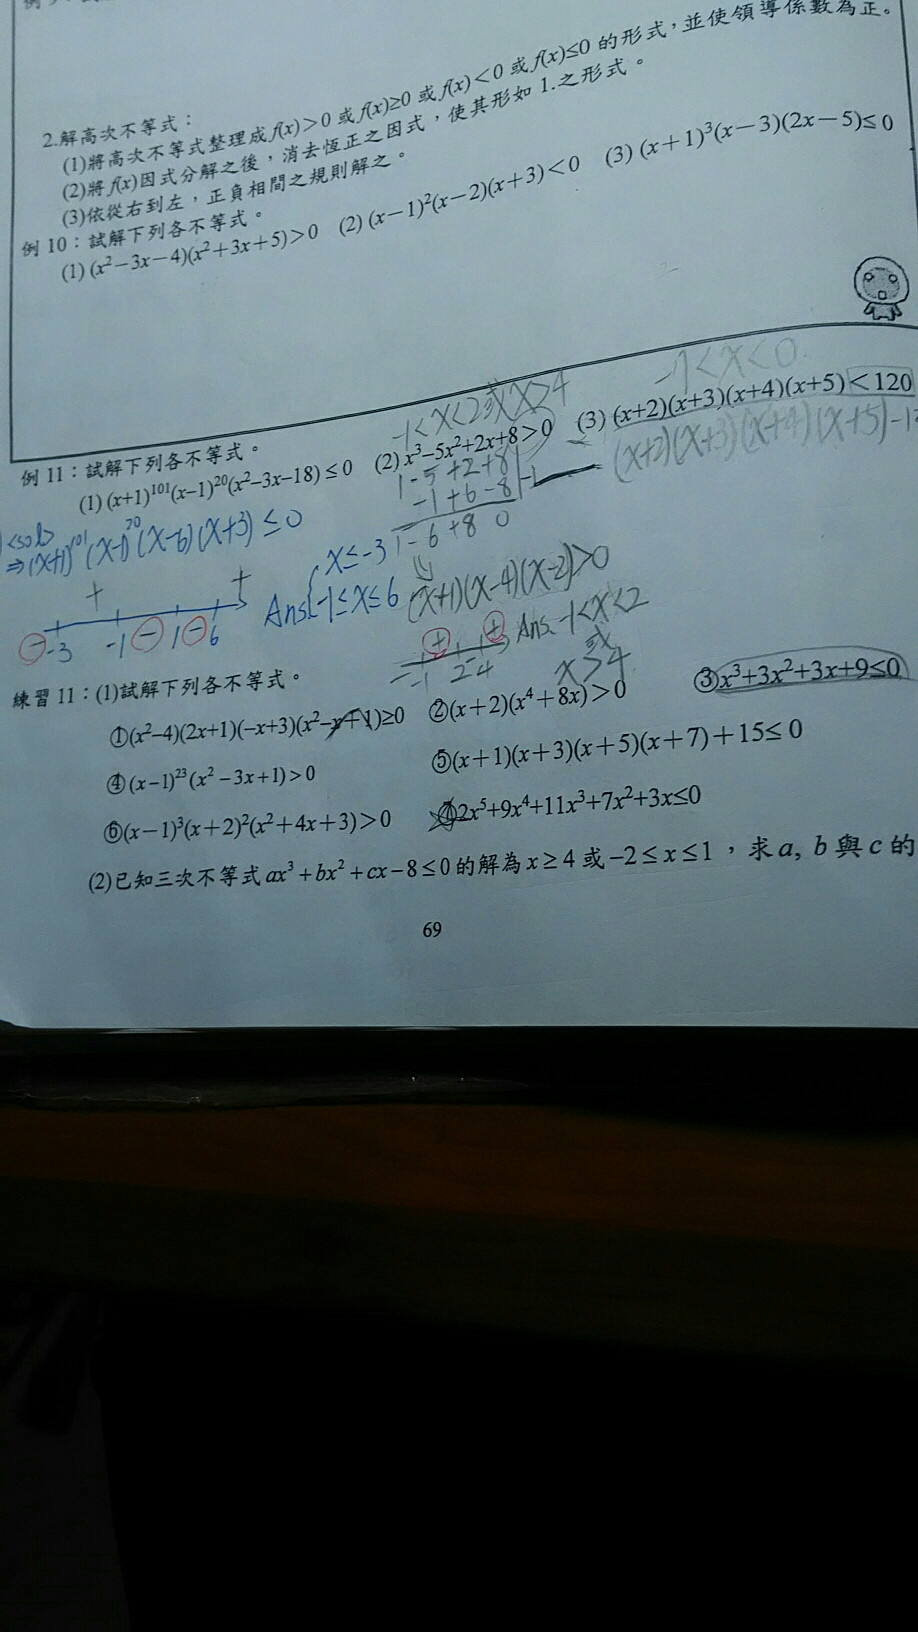 2.解高次不等式：
(1)將高次不等式整理成 f(x)>0 或 f(x)≥0 或 f(x)<0 或 f(x)≤0 的形式，並使領導係數為正。
(2)將 f(x)因式分解之後，消去恆正之因式，使其形如 1.之形式。
(3)依從右到左，正負相間之規則解之。
例 10：試解下列各不等式。
(1) (x²−3x−4)(x²+3x+5)>0 (2) (x−1)²(x−2)(x+3)<0 (3) (x+1)³(x−3)(2x−5)≤0
-1<x<2或x>4
-1<x<0
例 11：試解下列各不等式。
(1) (x+1)¹⁰¹(x−1)²⁰(x²−3x−18)≤0 (2) x³−5x²+2x+8>0 (3) (x+2)(x+3)(x+4)(x+5)<120
(x+2)(x+3)(x+4)(x+5)-12
1-5+2+8
-1+6-8 -1
1-6+8 0
<sol>
⇒(x+1)¹⁰¹(x-1)²⁰(x-6)(x+3)≤0
+ +
-3 -1 − 1 − 6
Ans{x≤-3
-1≤x≤6
(x+1)(x-4)(x-2)>0
+ +
-1 2 - 4
Ans. -1<x<2
或
x>4
練習 11：(1)試解下列各不等式。
①(x²−4)(2x+1)(−x+3)(x²−x+1)≥0 ②(x+2)(x⁴+8x)>0 ③x³+3x²+3x+9≤0
④(x−1)²³(x²−3x+1)>0 ⑤(x+1)(x+3)(x+5)(x+7)+15≤0
⑥(x−1)³(x+2)²(x²+4x+3)>0 ⑦2x⁵+9x⁴+11x³+7x²+3x≤0
(2)已知三次不等式 ax³+bx²+cx−8≤0 的解為 x≥4 或 −2≤x≤1，求 a, b 與 c 的
69